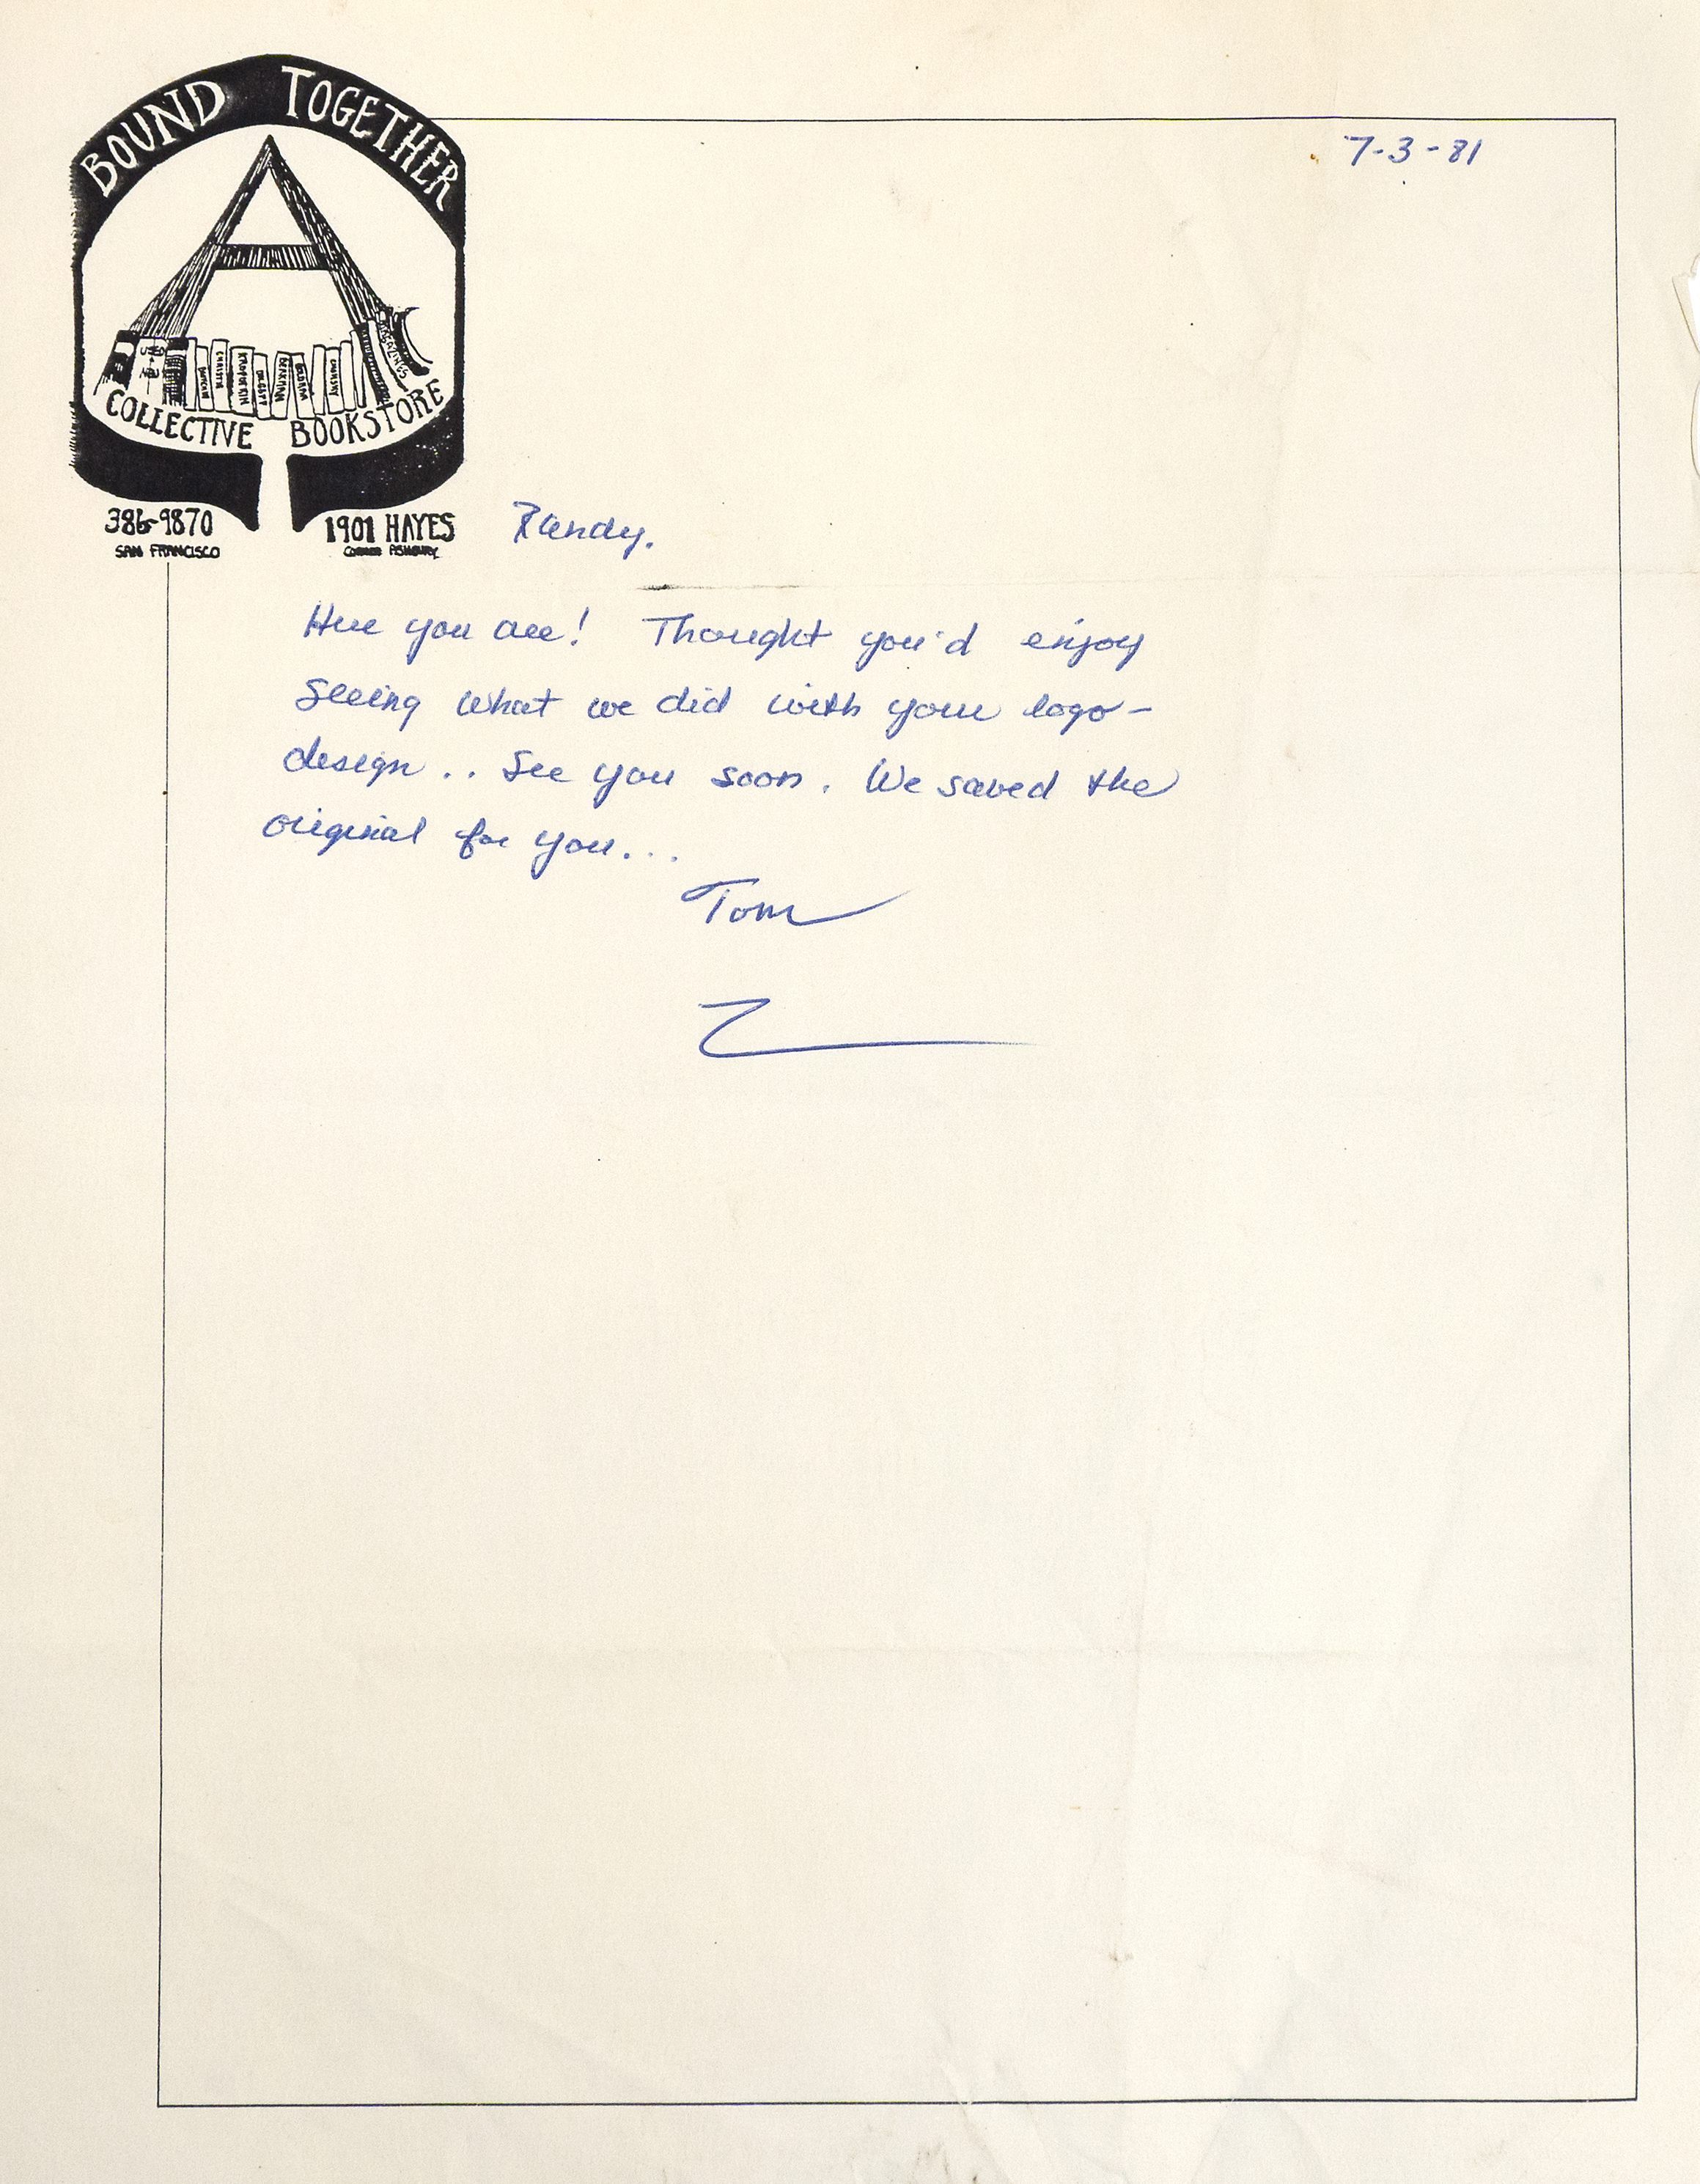 BOUND TOGETHER
7-3-81
KROPOTKIN
BERKMAN
GOLDMAN
COLLECTIVE BOOKSTORE
386-9870
SAN FRANCISCO
1901 HAYES
CORNER ASHBURY
Randy.
Here you are! Thought you'd enjoy
seeing what we did with your logo-
design.. See you soon. We saved the
original for you...
Tom